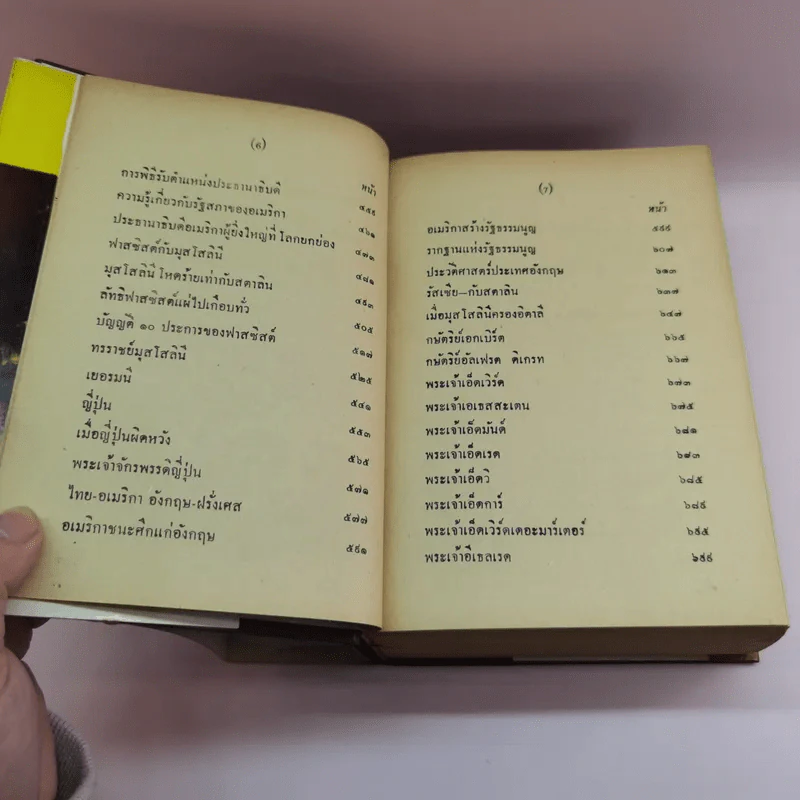 (๖)
หน้า
การพิธีรับตำแหน่งประธานาธิบดี ๔๕๙
ความรู้เกี่ยวกับรัฐสภาของอเมริกา ๔๖๑
ประธานาธิบดีอเมริกาผู้ยิ่งใหญ่ที่โลกยกย่อง ๔๗๓
ฟาสซิสต์กับมุสโสลินี ๔๘๑
มุสโสลินีโหดร้ายเท่ากับสตาลิน ๔๙๓
ลัทธิฟาสซิสต์แผ่ไปเกือบทั่ว ๕๐๕
บัญญัติ ๑๐ ประการของฟาสซิสต์ ๕๑๗
ทรราชย์มุสโสลินี ๕๒๕
เยอรมนี ๕๔๑
ญี่ปุ่น ๕๕๓
เมื่อญี่ปุ่นผิดหวัง ๕๖๕
พระเจ้าจักรพรรดิญี่ปุ่น ๕๗๑
ไทย-อเมริกา อังกฤษ-ฝรั่งเศส ๕๗๗
อเมริกาชนะศึกแก่อังกฤษ ๕๙๑
(๗)
หน้า
อเมริกาสร้างรัฐธรรมนูญ ๕๙๙
รากฐานแห่งรัฐธรรมนูญ ๖๐๗
ประวัติศาสตร์ประเทศอังกฤษ ๖๑๓
รัสเซีย—กับสตาลิน ๖๓๗
เมื่อมุสโสลินีครองอิตาลี ๖๔๗
กษัตริย์เอกเบิร์ต ๖๖๕
กษัตริย์อัลเฟรด ดิเกรท ๖๖๗
พระเจ้าเอ็ดเวิร์ด ๖๗๓
พระเจ้าเอเธสสะเตน ๖๗๕
พระเจ้าเอ็ดมันต์ ๖๘๑
พระเจ้าเอ็ดเรด ๖๘๓
พระเจ้าเอ็ดวี ๖๘๕
พระเจ้าเอ็ดการ์ ๖๘๙
พระเจ้าเอ็ดเวิร์ดเดอะมาร์เตอร์ ๖๙๕
พระเจ้าอีเธลเรด ๖๙๙